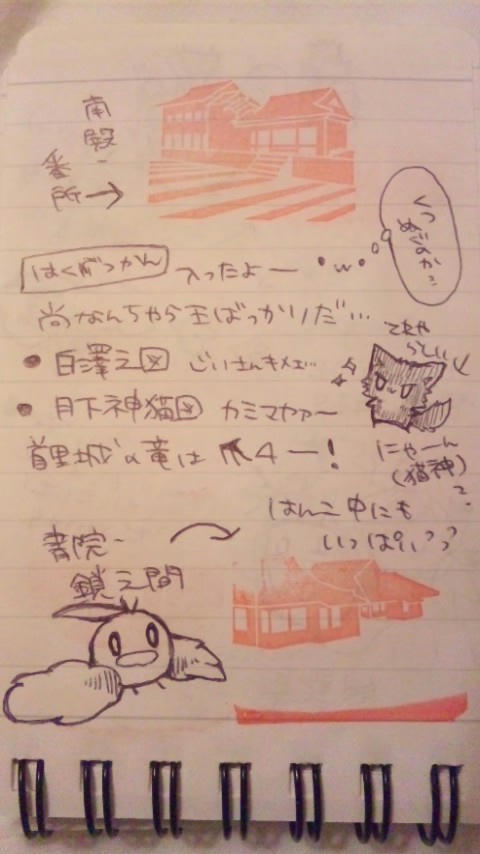 南殿・
番所→
はくぶつかん 入ったよー ・w・
尚なんちゃら王ばっかりだ…
● 白澤之図 じいさんキメェ…
● 月下神猫図 カミマヤァー
首里城の竜は 爪4ー!
にゃーん
(猫神)
はんこ中にも
いっぱいっっ
書院・
鎖之間